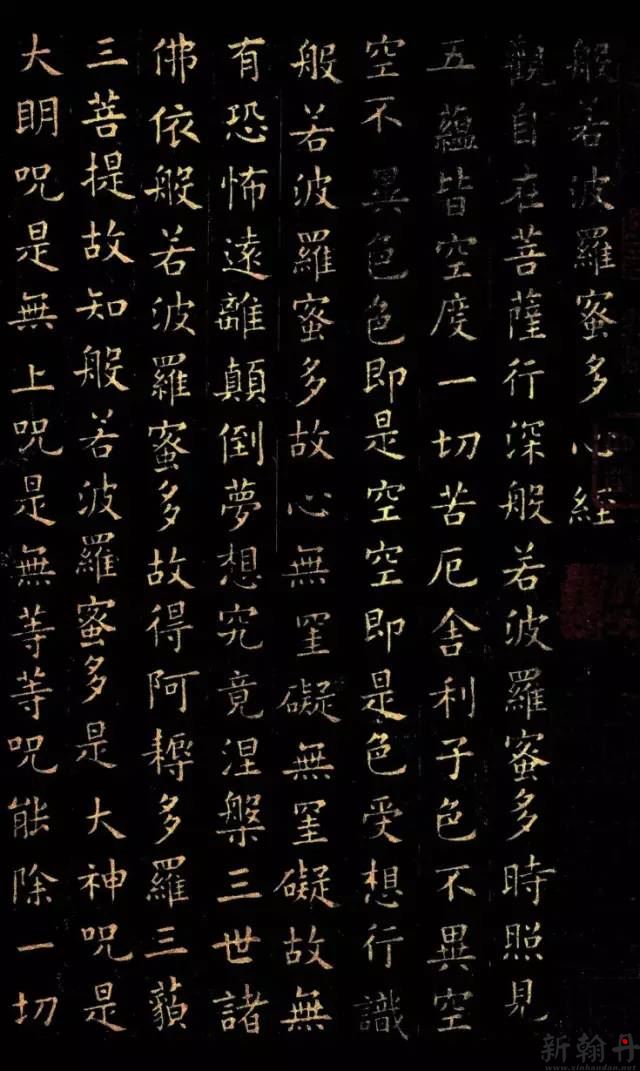 般若波羅蜜多心經
觀自在菩薩行深般若波羅蜜多時照見
五蘊皆空度一切苦厄舍利子色不異空
空不異色色即是空空即是色受想行識
般若波羅蜜多故心無罣礙無罣礙故無
有恐怖遠離顛倒夢想究竟涅槃三世諸
佛依般若波羅蜜多故得阿耨多羅三藐
三菩提故知般若波羅蜜多是大神咒是
大明咒是無上咒是無等等咒能除一切
新翰丹
www.xinhandan.net